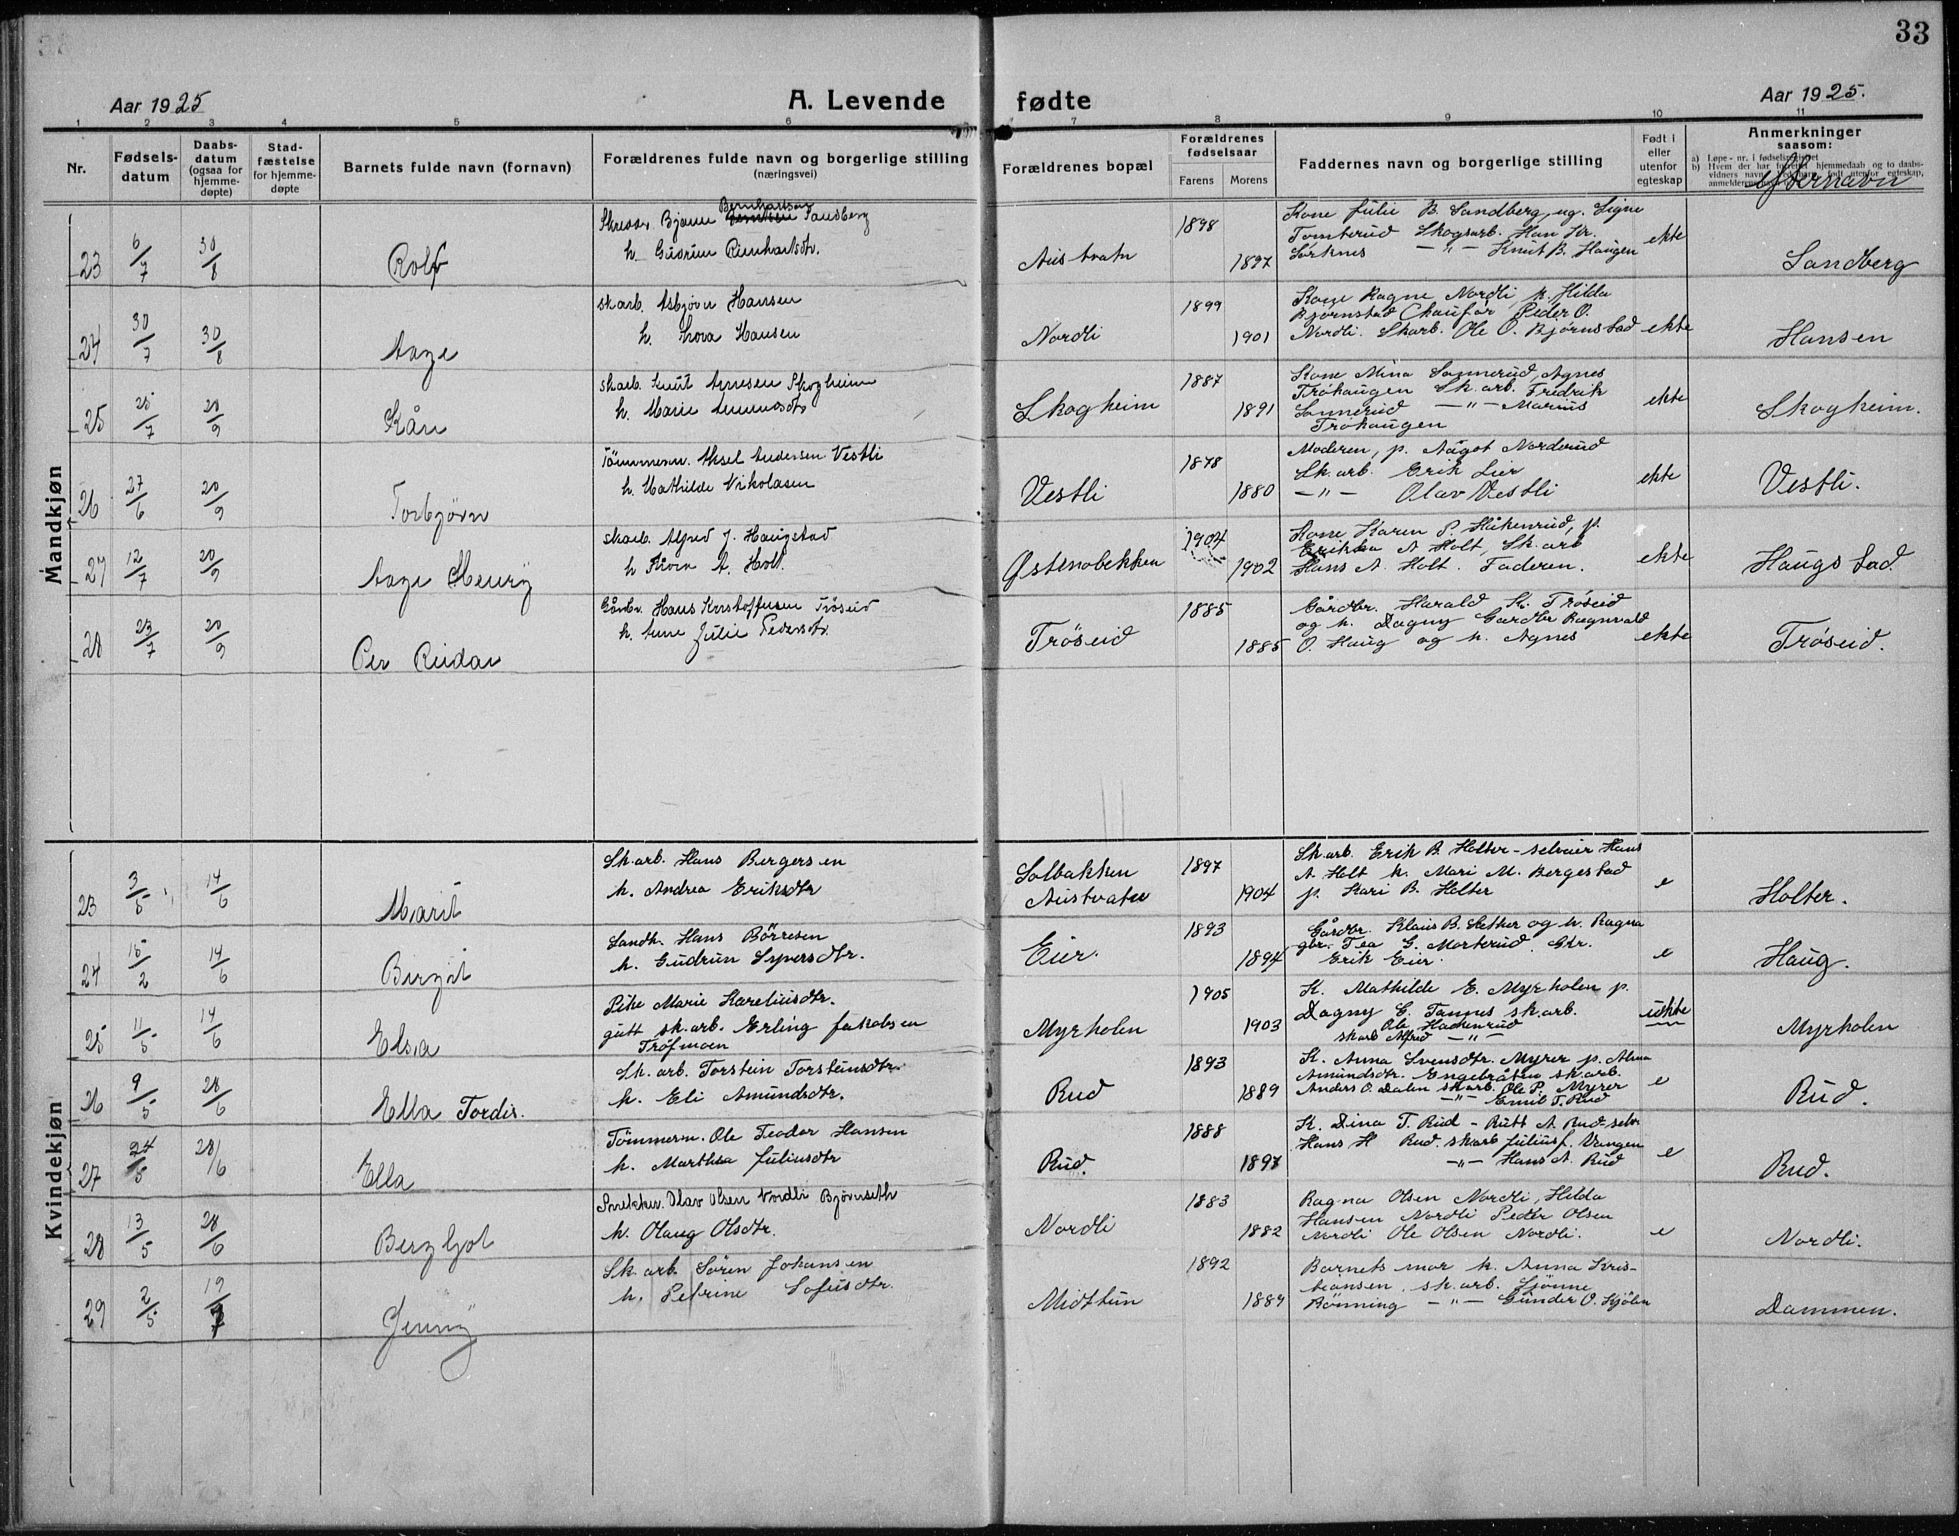 33
Aar 1925
A. Levende fødte
Aar 1925.
1 2 3 4 5 6 7 8 9 10 11
Nr.
Fødsels-
datum
Daabs-
datum
(ogsaa for
hjemme-
døpte)
Stad-
fæstelse
for hjemme-
døpte
Barnets fulde navn (fornavn)
Forældrenes fulde navn og borgerlige stilling
(næringsvei)
Forældrenes bopæl
Forældrenes
fødselsaar
Farens Morens
Faddernes navn og borgerlige stilling
Født i
eller
utenfor
egteskap
Anmerkninger
saasom:
efternavn
Mandkjøn
23 6/7 30/8 Rolf
Bjarne Bernhartsen Sandberg
h. Gudrun
Austvatn
1898
1897
Kone Julie B. Sandberg, ug. Signe
Tomterud Skogsarb. Han Kr.
Sørknes —"— Knut B. Haugen
ekte
Sandberg
24 30/7 30/8 Aage
skarb. Asbjørn Hansen
h. Hansen
Nordli
1899
1901
Kone Ragne Nordli, p. Hilda
Bjørnstad Chaufør Peder O.
Nordli. Skarb. Ole O. Bjørnstad
ekte
Hansen
25 25/7 20/9 Kån
skarb. Knut Arnesen Skogheim
h. Marie
Skogheim
1887
1891
Kone Mina Sonnerud, Agnes
Trøhaugen Sk.arb. Fredrik
Sonnerud —"— Marius
Trøhaugen
ekte
Skogheim.
26 27/6 20/9 Torbjørn
Tømmerm. Aksel Andersen Vestli
h. Mathilde Nikolasen
Vestli
1878
1880
Moderen, p. Aågot Norderud
Sk.arb. Erik Lier
—"— Olav Vestli
ekte
Vestli.
27 12/7 20/9 Aage Henry
skarb. Alfred J. Haugstad
h. A. Holt.
Østenobekken
1904
1902
Kone Karen P. Håkenrud, p.
Erikka A Holt, Sk.arb
Hans A. Holt. Faderen.
ekte
Haugstad
28 23/7 20/9 Per Reidar
Gårbr. Hans Kristoffersen Trøseid
h. Anne Julie Pedersdtr.
Trøseid
1885
1885
Gårdbr. Harald K. Trøseid
og h. Dagny Gårdbr Ragnvald
O. Haug og h. Agnes
ekte
Trøseid.
Kvindekjøn
23 3/5 14/6 Marit
Sk.arb. Hans Bergersen
h. Andrea Eriksdtr
Solbakken
Austvatn
1897
1904
Sk.arb. Erik B. Holter - selveier Hans
A Holt h. Mari M. Bergestad
p. Kari B. Holter
e
Holter.
24 15/2 14/6 Birgit
Landh. Hans Börresen
h. Gudrun Syversdtr.
Eier.
1893
1894
Gårdbr. Klaus B. Sether og h. Ragna
gbr. Tea G. Morterud Gbr.
Erik Eier.
e
Haug.
25 11/5 14/6 Elsa
Pike Marie Kareliusdtr.
gutt sk.arb. Erling Jakobsen
Trøfmoen
Myrholen
1905
1903
K. Mathilde E. Myrholen p.
Dagny E. Tannes sk.arb.
Ole Hackenrud
skarb Alfred —"—
uekte
Myrholen
26 9/5 28/6 Ella Tordis.
Sk.arb. Torstein Torsteinsdtr.
h. Eli Amundsdtr.
Rud
1893
1889
K. Anna Svensdtr. Myrer p. Alma
Amundsdtr. Engebråten sk.arb.
Anders O. Dalen sk.arb. Ole P. Myrer
—"— Emil T. Rud
e
Rud.
27 24/5 28/6 Ella
Tømmerm. Ole Teodor Hansen
h. Marthea Juliusdtr
Rud.
1888
1897
K. Dina T. Rud - Rutt A Rud selv.
Hans H Rud. skarb Julius J. Vangen
—"— Hans A. Rud
e
Rud.
28 13/5 28/6 Bergljot
Snekker. Olav Olsen Nordli Bjørnseth
h. Olaug Olsdtr.
Nordli
1883
1882
Ragna Olsen Nordli, Hilda
Hansen Nordli Peder Olsen
Nordli Ole Olsen Nordli.
e
Nordli.
29 2/5 19/7 Jenny
Sk.arb. Sören Johansen
h. Petrine Sofusdtr.
Midttun
1892
1889
Barnets mor k. Anna Kris-
tiansen. sk.arb. Sjønne
Rønning —"— Gunder O. Kjølen
Dammen.